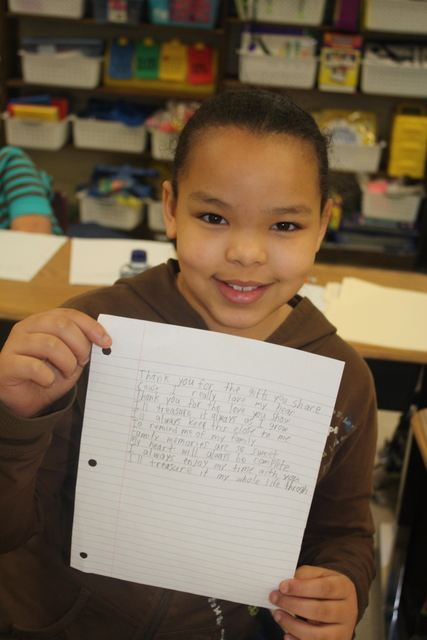 Thank you for the gift you share
I really love my bear
Thank you for the love you show
I'll treasure it always as I grow
I'll always keep this close to me
To remind me of my family
Family memories are so sweet
My heart will always be complete
I always enjoy my time with you
I'll treasure it my whole life through